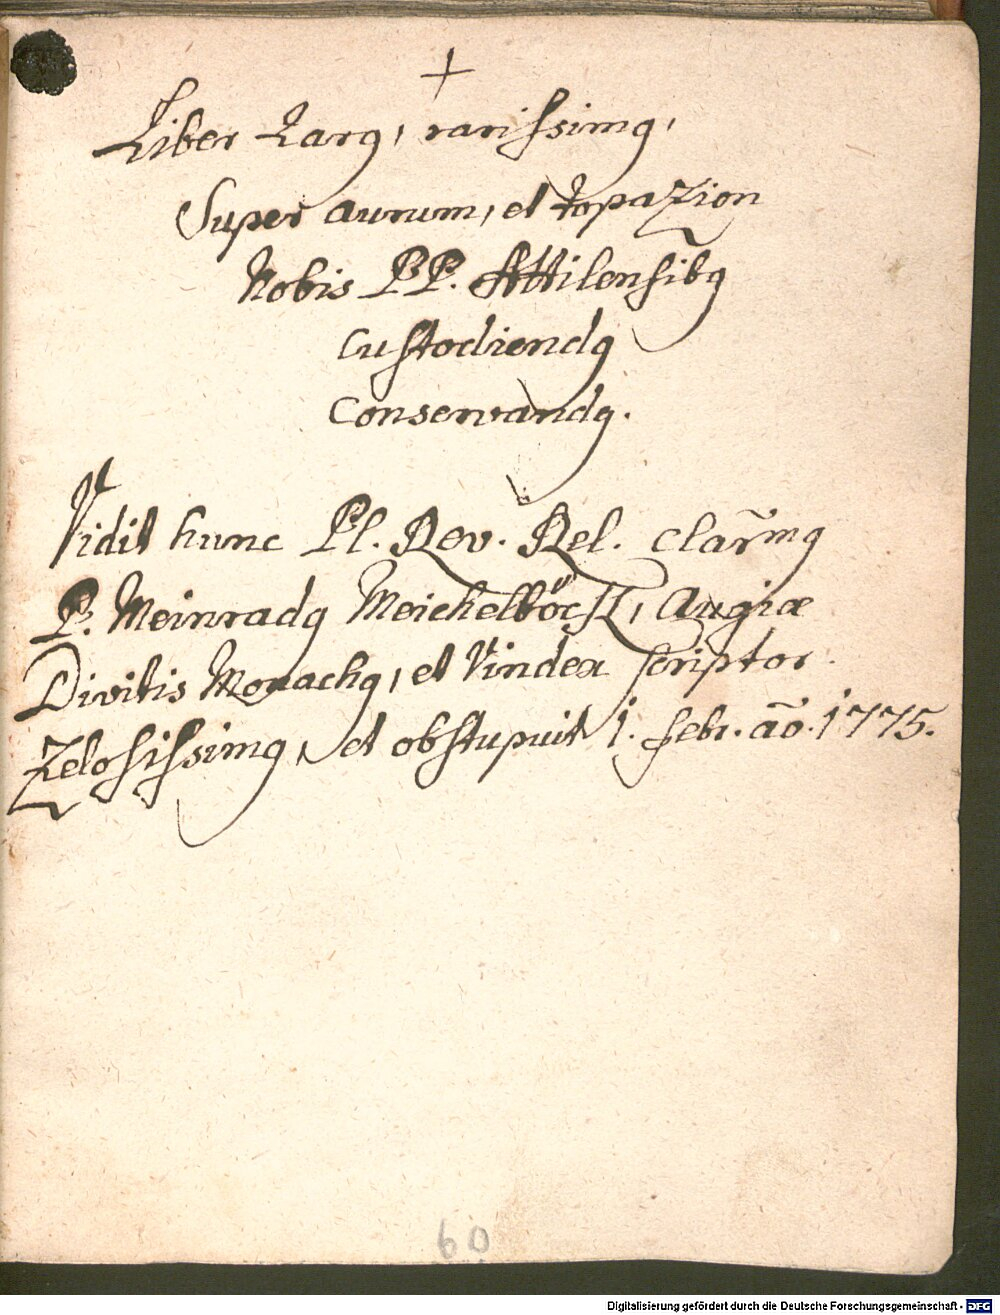 +
Liber Rarꝯ, rarissimꝯ,
Super aurum, et topazion
Nobis PP. Attilensibꝯ
custodiendꝯ
conservandꝯ.
Vidit hunc Pl. Rev. Rel. clar̃mꝯ
P. Meinradꝯ Meichelböck, Augiæ
Divitis Monachꝯ, et Vindex scriptor
Zelosissimꝯ, et obstupuit 1. febr. aõ. 1775.
60
Digitalisierung gefördert durch die Deutsche Forschungsgemeinschaft - DFG